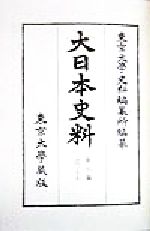 東京大學史料編纂所編纂
大日本史料
東京大學蔵版